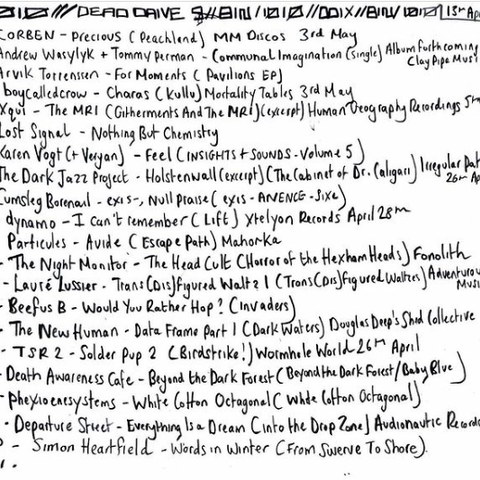 DEAD DRIVE 13th Ap
CORBEN - Precious (Peachland) MM Discos 3rd May
Andrew Wasylyk + Tommy Perman - Communal Imagination (single) Album forthcoming
Clay Pipe Musi
Arvik Torrenssen - For Moments (Pavilions EP)
boycalledcrow - Charas (Kullu) Mortality Tables 3rd May
Xqui - The MRI (Githerments And The MRI) (excerpt) Human Geography Recordings
Lost Signal - Nothing But Chemistry
Karen Vogt (+ Veryan) - Feel (INSIGHTS + SOUNDS - Volume 5)
The Dark Jazz Project - Holstenwall (excerpt) (The Cabinet of Dr. Caligari) Irregular Pat
26th Ap
Cumsleg Borenail - exis-, Null Praise (exis - ANENCE - Sixe)
dynamo - I can't remember (Lift) Xtelyon Records April 28th
Particules - Avide (Escape Path) Mahorka
- The Night Monitor - The Head Cult (Horror of the Hexham Heads) Fonolith
- Lauré Lussier - Trans(Dis)figured Waltz 1 (Trans(Dis)figured Waltzes) Adventurou
Musi
- Beefus B - Would You Rather Hop? (Invaders)
- The New Human - Data Frame Part 1 (Dark Waters) Douglas Deep's Shed Collective
- TSR2 - Solder Pup 2 (Birdstrike!) Wormhole World 26th April
- Death Awareness Cafe - Beyond the Dark Forest (Beyond the Dark Forest/Baby Blue)
- Phexioenesystems - White Cotton Octagonal (White Cotton Octagonal)
- Departure Street - Everything Is a Dream (into the Drop Zone) Audionautic Record
- Simon Heartfield - Words in Winter (From Swerve To Shore).